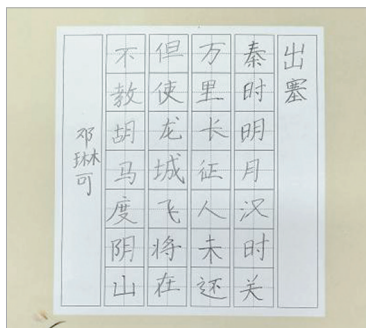 出塞
秦时明月汉时关
万里长征人未还
但使龙城飞将在
不教胡马度阴山
邓琳可